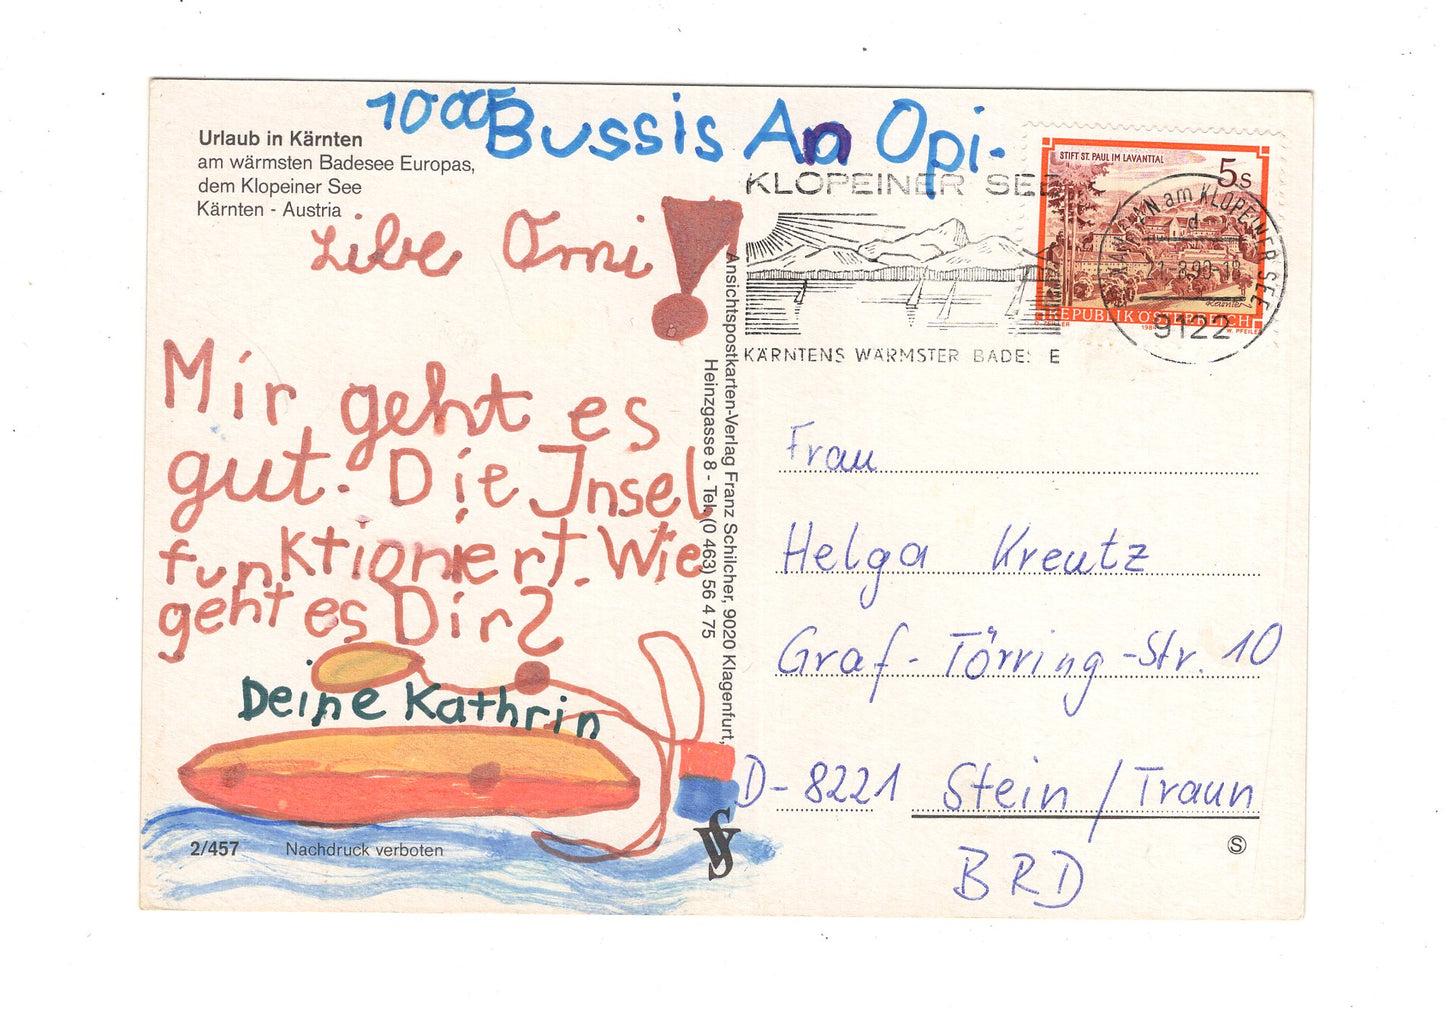 1000 Bussis An Opi-
Urlaub in Kärnten
am wärmsten Badesee Europas,
dem Klopeiner See
Kärnten - Austria
Libe Omi!
Mir geht es
gut. Die Insel
funktioniert. Wie
geht es Dir?
Deine Kathrin
2/457
Nachdruck verboten
Ansichtspostkarten-Verlag Franz Schilcher, 9020 Klagenfurt,
Heinzgasse 8 - Tel. (0 463) 56 4 75
KLOPEINER SEE
KÄRNTENS WÄRMSTER BADESEE
STIFT ST. PAUL IM LAVANTTAL
5s
REPUBLIK ÖSTERREICH
1984
W. PFEILER
Kärnten
AM am KLOPEINER SEE
d
8.90-18
9122
Frau
Helga Kreutz
Graf-Törring-Str. 10
D-8221 Stein/Traun
BRD
S